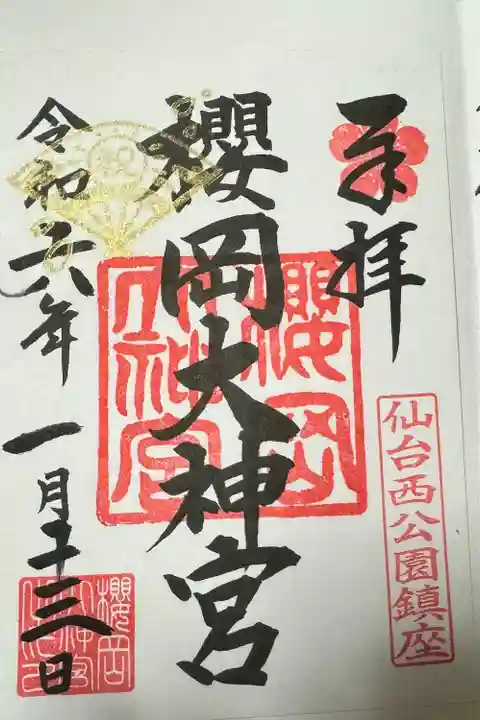 奉拝
仙台西公園鎮座
櫻岡大神宮
櫻岡大神宮
令和六年
一月十三日